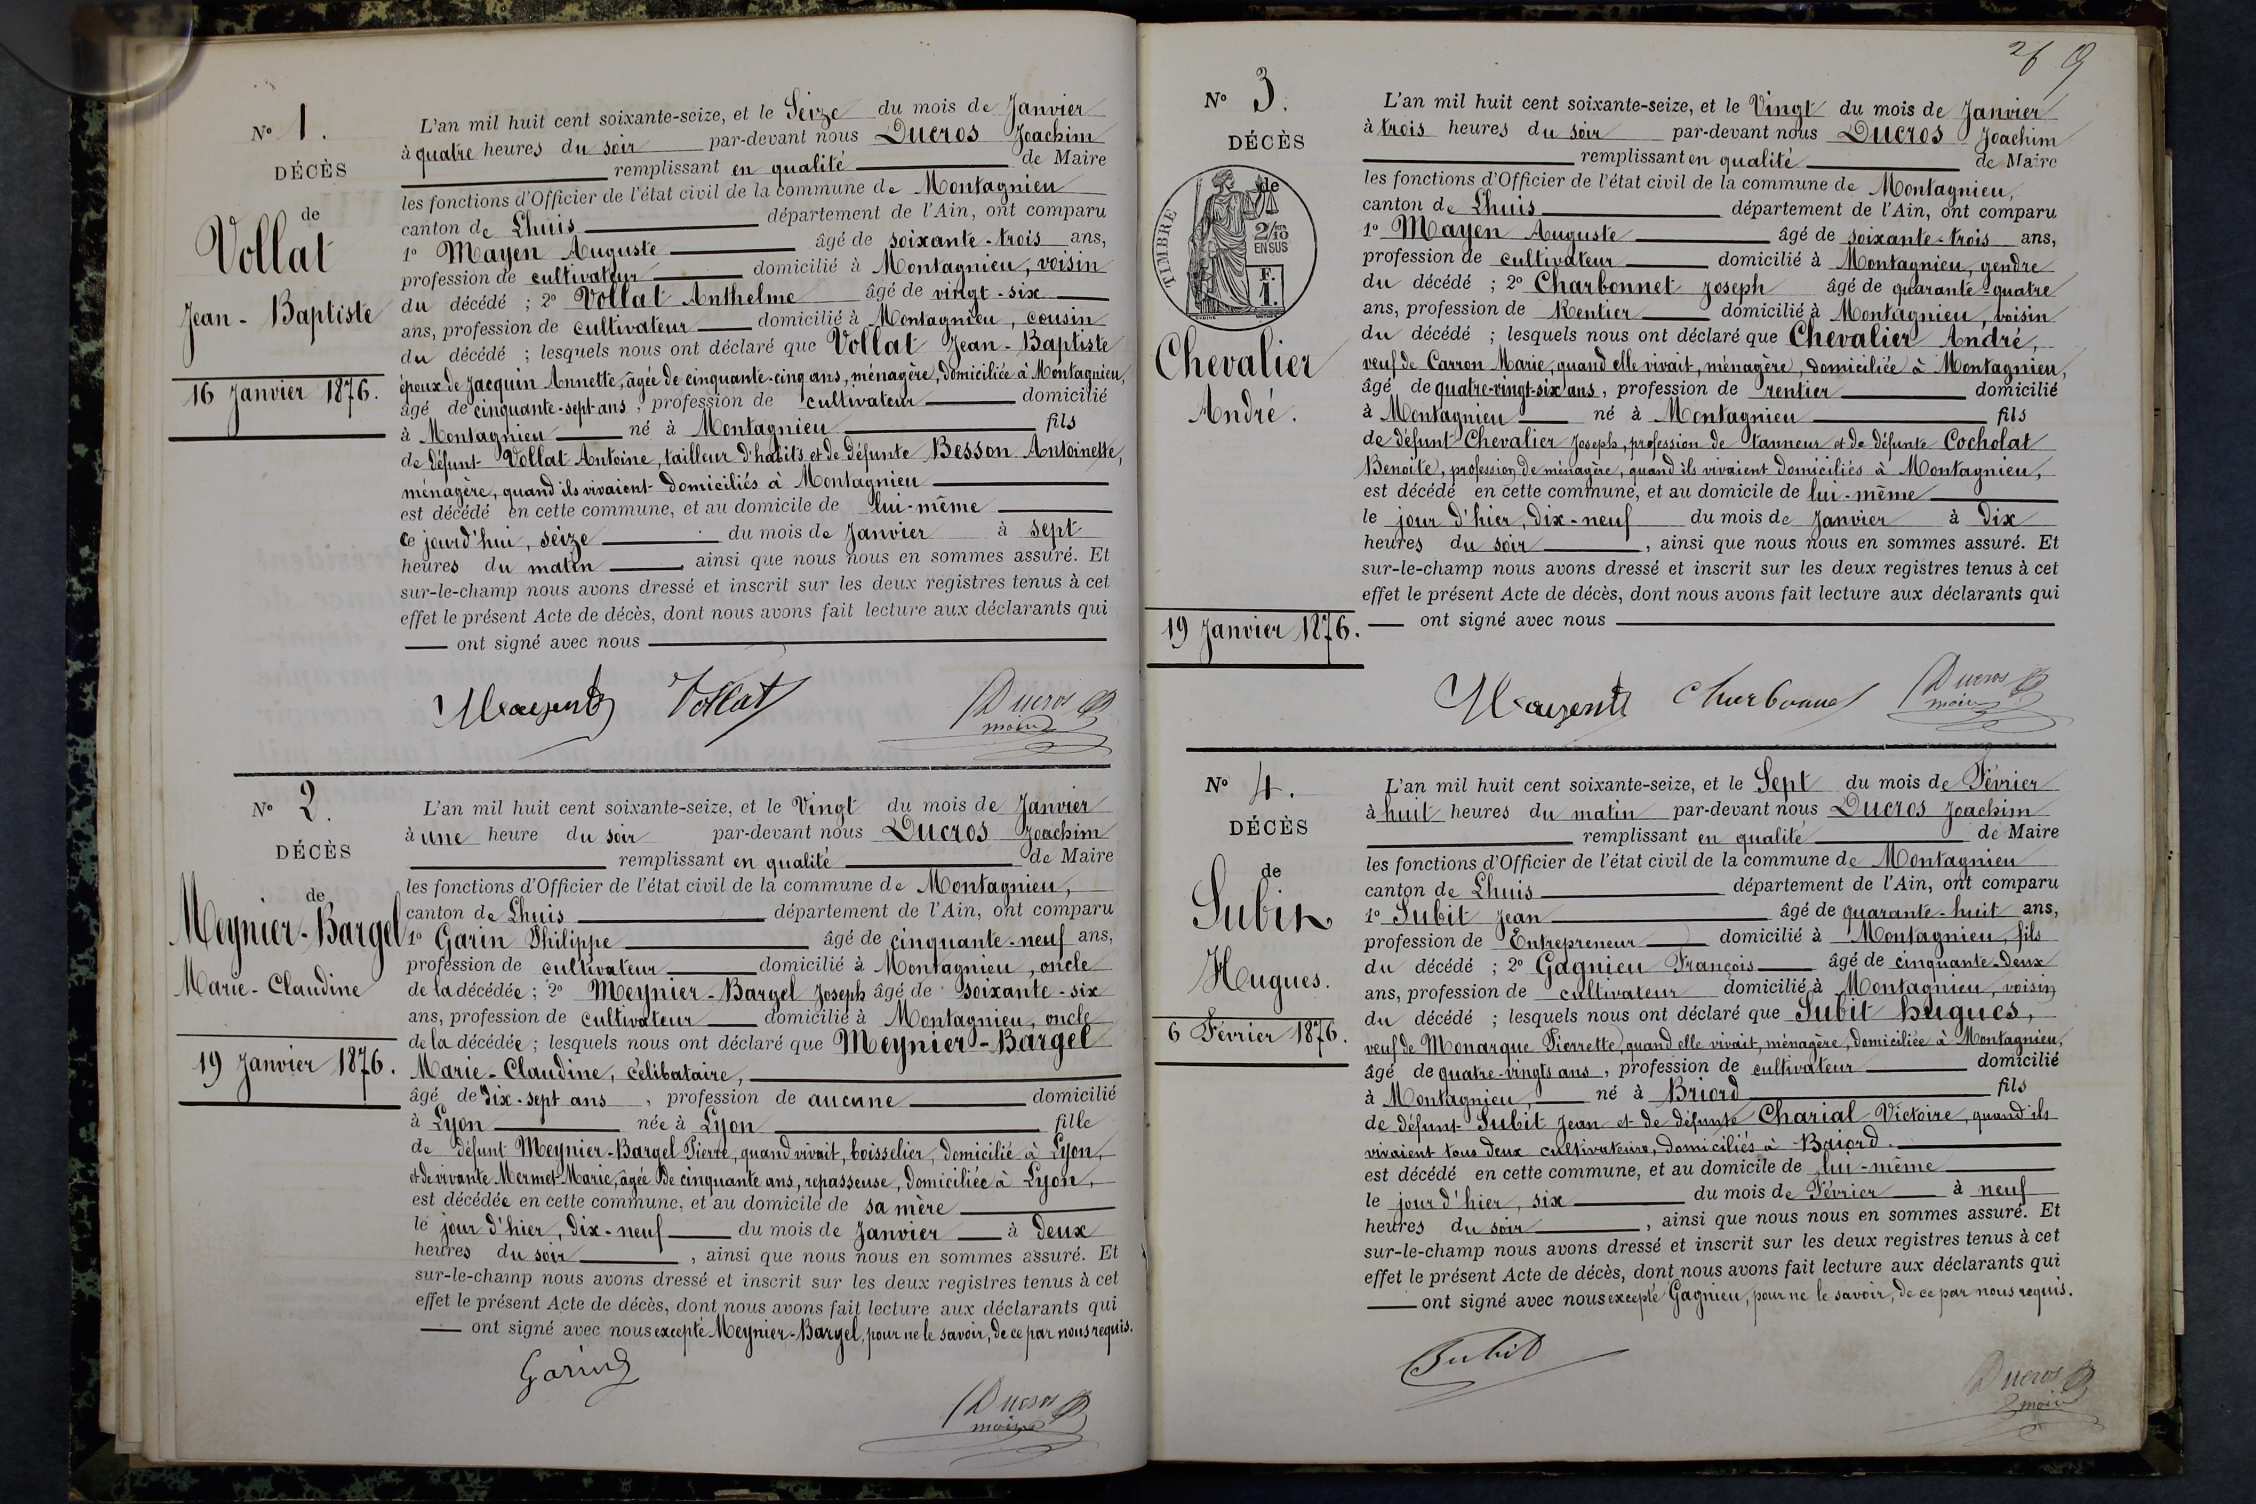 N° 1.
DÉCÈS
de
Vollat
Jean-Baptiste
16 Janvier 1876.
L'an mil huit cent soixante-seize, et le Seize du mois de Janvier
à quatre heures du soir par-devant nous Ducros Joachim
remplissant en qualité de Maire
les fonctions d'Officier de l'état civil de la commune de Montagnieu
canton de Lhuis département de l'Ain, ont comparu
1° Mayen Auguste âgé de soixante-trois ans,
profession de cultivateur domicilié à Montagnieu, voisin
du décédé ; 2° Vollat Anthelme âgé de vingt-six
ans, profession de cultivateur domicilié à Montagnieu, cousin
du décédé ; lesquels nous ont déclaré que Vollat Jean-Baptiste
époux de Jacquin Annette, âgée de cinquante-cinq ans, ménagère, domiciliée à Montagnieu,
âgé de cinquante-sept ans, profession de cultivateur domicilié
à Montagnieu né à Montagnieu fils
de défunt Vollat Antoine, tailleur d'habits et de défunte Besson Antoinette,
ménagère, quand ils vivaient domiciliés à Montagnieu
est décédé en cette commune, et au domicile de lui-même
ce jourd'hui, seize du mois de Janvier à sept
heures du matin, ainsi que nous nous en sommes assuré. Et
sur-le-champ nous avons dressé et inscrit sur les deux registres tenus à cet
effet le présent Acte de décès, dont nous avons fait lecture aux déclarants qui
ont signé avec nous
Vollat Ducros
maire
N° 2.
DÉCÈS
de
Meynier-Bargel
Marie-Claudine
19 Janvier 1876.
L'an mil huit cent soixante-seize, et le Vingt du mois de Janvier
à une heure du soir par-devant nous Ducros Joachim
remplissant en qualité de Maire
les fonctions d'Officier de l'état civil de la commune de Montagnieu,
canton de Lhuis département de l'Ain, ont comparu
1° Garin Philippe âgé de cinquante-neuf ans,
profession de cultivateur domicilié à Montagnieu, oncle
de la décédée ; 2° Meynier-Bargel Joseph âgé de soixante-six
ans, profession de cultivateur domicilié à Montagnieu, oncle
de la décédée ; lesquels nous ont déclaré que Meynier-Bargel
Marie-Claudine, célibataire,
âgé de dix-sept ans, profession de aucune domicilié
à Lyon née à Lyon fille
de défunt Meynier-Bargel Pierre, quand vivait, boisselier, domicilié à Lyon,
et de vivante Mermet Marie, âgée de cinquante ans, repasseuse, domiciliée à Lyon,
est décédée en cette commune, et au domicile de sa mère
le jour d'hier, dix-neuf du mois de Janvier à deux
heures du soir, ainsi que nous nous en sommes assuré. Et
sur-le-champ nous avons dressé et inscrit sur les deux registres tenus à cet
effet le présent Acte de décès, dont nous avons fait lecture aux déclarants qui
ont signé avec nous excepté Meynier-Bargel, pour ne le savoir, de ce par nous requis.
Garin
Ducros
maire
26 9
N° 3.
DÉCÈS
de
TIMBRE
2/10 EN SUS
F. 1.
Chevalier
André.
19 Janvier 1876.
L'an mil huit cent soixante-seize, et le Vingt du mois de Janvier
à trois heures du soir par-devant nous Ducros Joachim
remplissant en qualité de Maire
les fonctions d'Officier de l'état civil de la commune de Montagnieu,
canton de Lhuis département de l'Ain, ont comparu
1° Mayen Auguste âgé de soixante-trois ans,
profession de cultivateur domicilié à Montagnieu, gendre
du décédé ; 2° Charbonnet Joseph âgé de quarante-quatre
ans, profession de Rentier domicilié à Montagnieu, voisin
du décédé ; lesquels nous ont déclaré que Chevalier André,
veuf de Carron Marie, quand elle vivait, ménagère, domiciliée à Montagnieu,
âgé de quatre-vingt-six ans, profession de rentier domicilié
à Montagnieu né à Montagnieu fils
de défunt Chevalier Joseph, profession de tanneur et de défunte Cocholat
Benoite, profession de ménagère, quand ils vivaient domiciliés à Montagnieu,
est décédé en cette commune, et au domicile de lui-même
le jour d'hier, dix-neuf du mois de Janvier à dix
heures du soir, ainsi que nous nous en sommes assuré. Et
sur-le-champ nous avons dressé et inscrit sur les deux registres tenus à cet
effet le présent Acte de décès, dont nous avons fait lecture aux déclarants qui
ont signé avec nous
Charbonnet Ducros
maire
N° 4.
DÉCÈS
de
Subit
Hugues.
6 Février 1876.
L'an mil huit cent soixante-seize, et le Sept du mois de Février
à huit heures du matin par-devant nous Ducros Joachim
remplissant en qualité de Maire
les fonctions d'Officier de l'état civil de la commune de Montagnieu
canton de Lhuis département de l'Ain, ont comparu
1° Subit Jean âgé de quarante-huit ans,
profession de Entrepreneur domicilié à Montagnieu, fils
du décédé ; 2° Gagnieu François âgé de cinquante-deux
ans, profession de cultivateur domicilié à Montagnieu, voisin
du décédé ; lesquels nous ont déclaré que Subit hugues,
veuf de Monarque Pierrette, quand elle vivait, ménagère, domiciliée à Montagnieu,
âgé de quatre-vingts ans, profession de cultivateur domicilié
à Montagnieu, né à Briord fils
de défunt Subit Jean et de défunte Charial Victoire, quand ils
vivaient tous deux cultivateurs, domiciliés à Briord.
est décédé en cette commune, et au domicile de lui-même
le jour d'hier, six du mois de Février à neuf
heures du soir, ainsi que nous nous en sommes assuré. Et
sur-le-champ nous avons dressé et inscrit sur les deux registres tenus à cet
effet le présent Acte de décès, dont nous avons fait lecture aux déclarants qui
ont signé avec nous excepté Gagnieu, pour ne le savoir, de ce par nous requis.
Subit
Ducros
maire